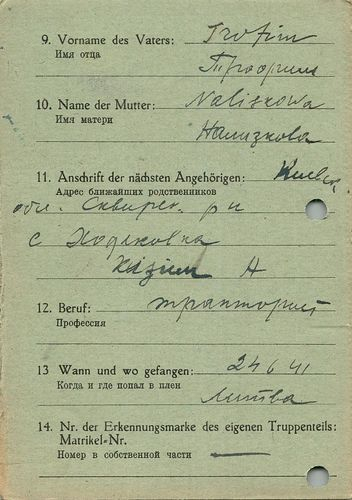 9. Vorname des Vaters: Trofim
Имя отца Трофим
10. Name der Mutter: Naliskowa
Имя матери Нализкова
11. Anschrift der nächsten Angehörigen: Киевск.
Адрес ближайших родственников
обл. Сквирск. р н
с Ходаковка
А
12. Beruf: тракторист
Профессия
13 Wann und wo gefangen: 24 6 41
Когда и где попал в плен
Литва
14. Nr. der Erkennungsmarke des eigenen Truppenteils:
Matrikel-Nr.
Номер в собственной части —